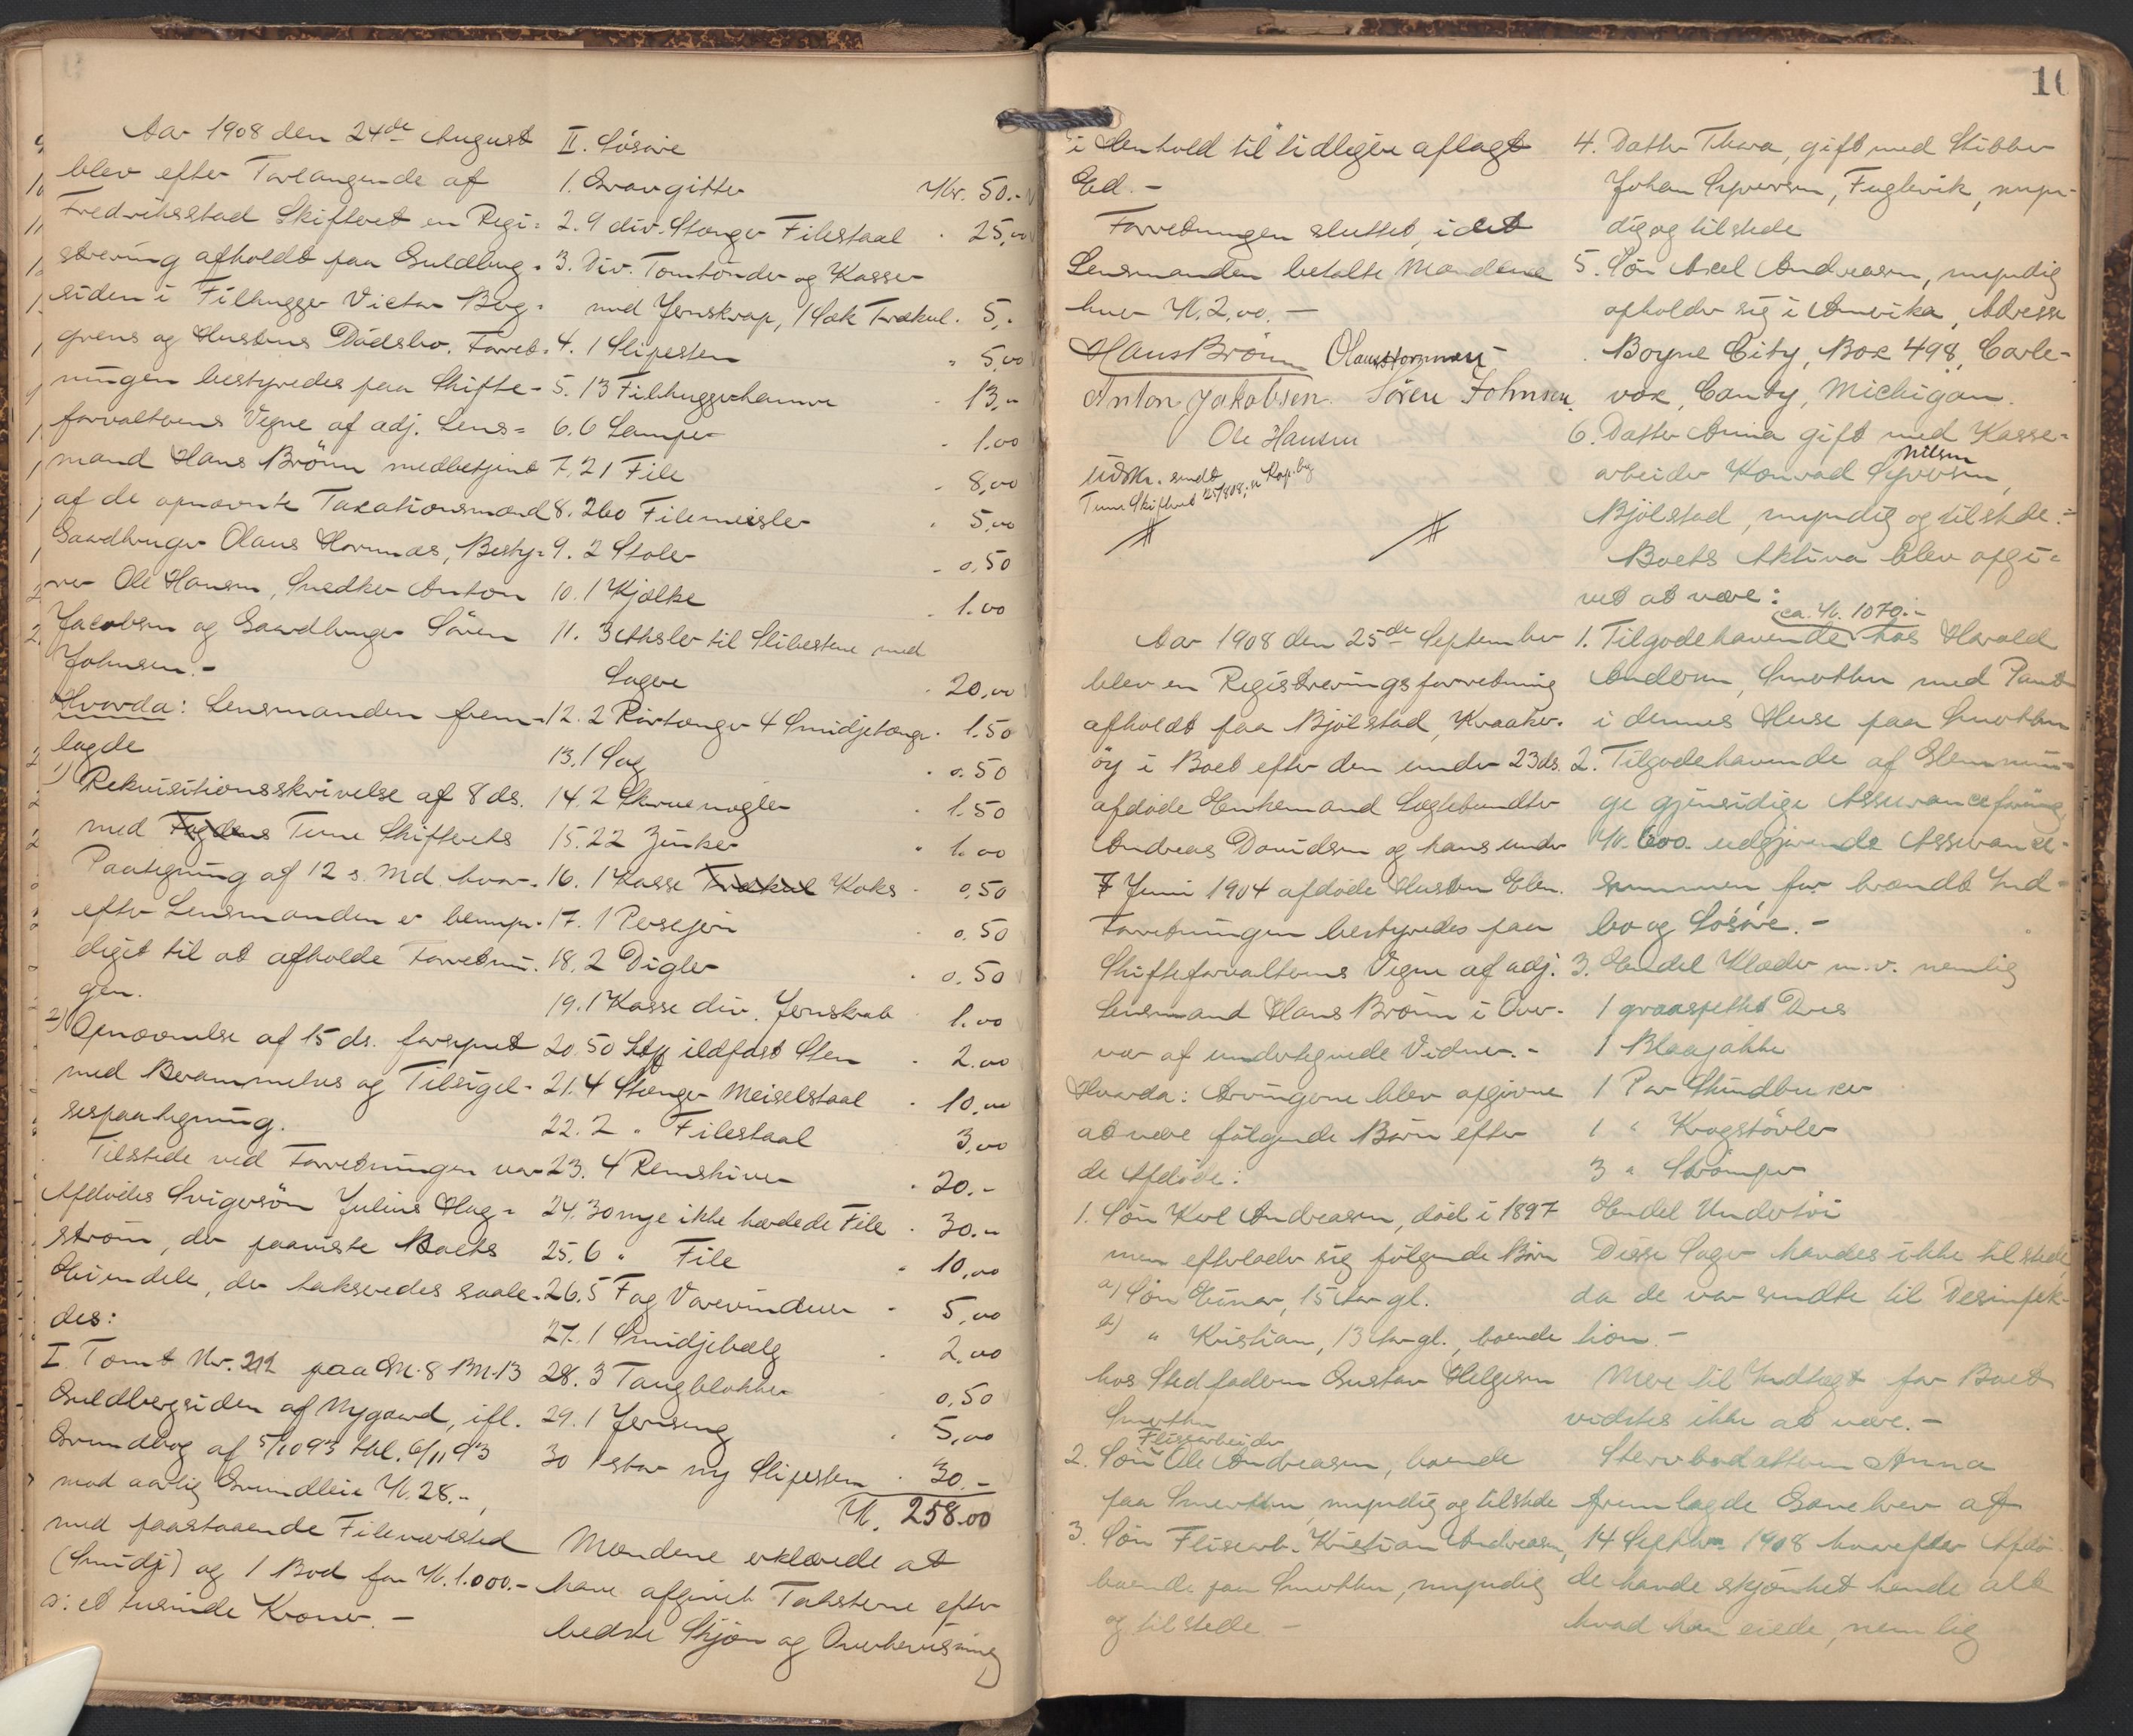 Aar 1908 den 24de August
blev efter Forlangende af
Fredriksstad Skifteret en Regi=
strering afholdt paa Guldberg-
siden i Filhugger Victor Berg-
grens og Hustrus Dödsbo. Forret-
ningen bestyredes paa Skifte-
forvalterens Vegne af adj. Lens=
mand Hans Brönn medbetjent
af de opnævnte Taxationsmænd
Gaardbruger Olaus Hornnæs, Besty-
rer Ole Hansen, Snedker Anton
Jacobsen og Gaardbruger Sören
Johnsen.-
Hvorda: Lensmanden frem-
lagde
1) Rekvisitionsskrivelse af 8 ds.
med Fogdens Tune Skifterets
Paategning af 12 s. Md. hvor-
efter Lensmanden er bemyn-
diget til at afholde Forretnin-
gen.
2) Opnævnelse af 15 ds. forsynet
med Berammelses og Tilsigel-
sespaategning.
Tilstede ved Forretningen var
Afdödes Svigersön Julius Hag=
ström, der paaviste Boets
Eiendele, der takseredes saale-
des:
I Tomt Nr. 212 paa Gn. 8 Bn. 13
Guldbergsiden af Nygaard, ifl.
Grundbog af 5/10 93 thl. 6/11 93
mod aarlig Grundleie Kr. 28.-,
med paastaaende Fileværksted
(Smidje) og 1 Bod for Kr. 1.000.-
o: et tusinde Kroner.-
II. Lösöre
1. Gravgitter Kr. 50.-
2. 9 div. Stænger Filestaal " 25,00
3. Div. Tomtönder og Kasser
med Jernskrap, 1 Sæk Trækul " 5,-
4. 1 Slipesten " 5,00
5. 13 Filhuggerhamre " 13,-
6. 6 Lamper " 1.00
7. 21 File " 8,00
8. 260 Filemeisler " 5,00
9. 2 Stoler " 0,50
10. 1 Kjælke " 1.00
11. 3 Akhsler til Slibestene med
Lagere " 20,00
12. 2 Rörtænger 4 Smidjetænger " 1.50
13. 1 Sag " 0.50
14. 2 Skruenøgler " 1.50
15. 22 Zinker " 1.00
16. 1 Kasse Trækul Koks " 0,50
17. 1 Persejern " 0.50
18. 2 Digler " 0.50
19. 1 Kasse div. Jernskrab " 1.00
20. 50 Stk ildfast Sten " 2.00
21. 4 Stænger Meiselstaal " 10,00
22. 2 " Filestaal 3,00
23. 4 Remskiver " 20.-
24. 30 nye ikke hærdede File " 30.-
25. 6 " File " 10,00
26. 5 Fag Varevinduer " 5,00
27. 1 Smidjebælg " 2,00
28. 3 Taugblokker 0,50
29. 1 Jernseng " 5,00
30 1 stor ny Slipesten " 30.-
Kr. 258.00
Mændene erklærede at
have afgivet Taksterne efter
bedste Skjön og Overbevisning
10
i Henhold til tidligere aflagt
Ed.-
Forretningen sluttet, idet
Lensmanden betalte Mændene
hver Kr. 2.00.-
Hans Brönn Olaus Hornnæs
Anton Jakobsen. Sören Johnsen.
Ole Hansen
Udskr. sendt
Tune Skifteret 25/8 08, se Kop.bog
Aar 1908 den 25de September
blev en Registreringsforretning
afholdt paa Bjölstad, Kraaker-
öy i Boet efter den under 23 ds.
afdöde Enkemand Sagtebundter
Andreas Davidsen og hans under
7 Juni 1904 afdöde Hustru Elen.
Forretningen bestyredes paa
Skifteforvalterens Vegne af adj.
Lensmand Hans Brönn i Over-
vær af undertegnede Vidner.-
Hvorda: Arvingerne blev opgivne
at være fölgende Börn efter
de Afdöde:
1. Sön Karl Andreasen, död i 1897
men efterlader sig fölgende Börn
a) Sön Einar, 15 Aar gl.
b) " Kristian, 13 Aar gl., boende
hos Stedfaderen Gustav Helgesen
Smerthen
2. Sön Flisearbeider Ole Andreasen, boende
paa Smerthen, myndig og tilstede
3. Sön Flisearb. Kristian Andreasen,
boende paa Smerthen, myndig
og tilstede -
4. Datter Thora, gift med Skibber
Johan Syversen, Fuglevik, myn-
dig og tilstede
5. Sön Axel Andreasen, myndig
opholder sig i Amerika, Adresse
Boyne City, Box 498, Carle-
vox, Canty, Michigan.
6. Datter Anna gift med Kasse-
arbeider Konrad Syversen Nilsen,
Bjölstad, myndig og tilstede.-
Boets Aktiva blev opgi-
vet at være:
1. Tilgodehavende ca. Kr. 1070.- hos Harald
Andersen, Smerthen med Pant
i dennes Huse paa Smerthen
2. Tilgodehavende af Glemmin-
ge gjensidige Assuranceforening
Kr. 600. udgjörende Assurance-
summen for brændt Ind-
bo og Lösöre.-
3. Endel Klæder m.v. nemlig
1 graaspettet Dres
1 Blaajakke
1 Par Skindbuxer
1 " Kragstövler
3 " Strömper
Endel Undertöi
Disse Sager havdes ikke tilstede,
da de var sendte til Desinfek-
tion.-
Mere til Indtægt for Boet
vidstes ikke at være.-
Stervboddatteren Anna
fremlagde Gavebrev af
14 Septbr. 1908 hvorefter Afdö-
de havde skjænket hende alt
hvad han eiede, nemlig